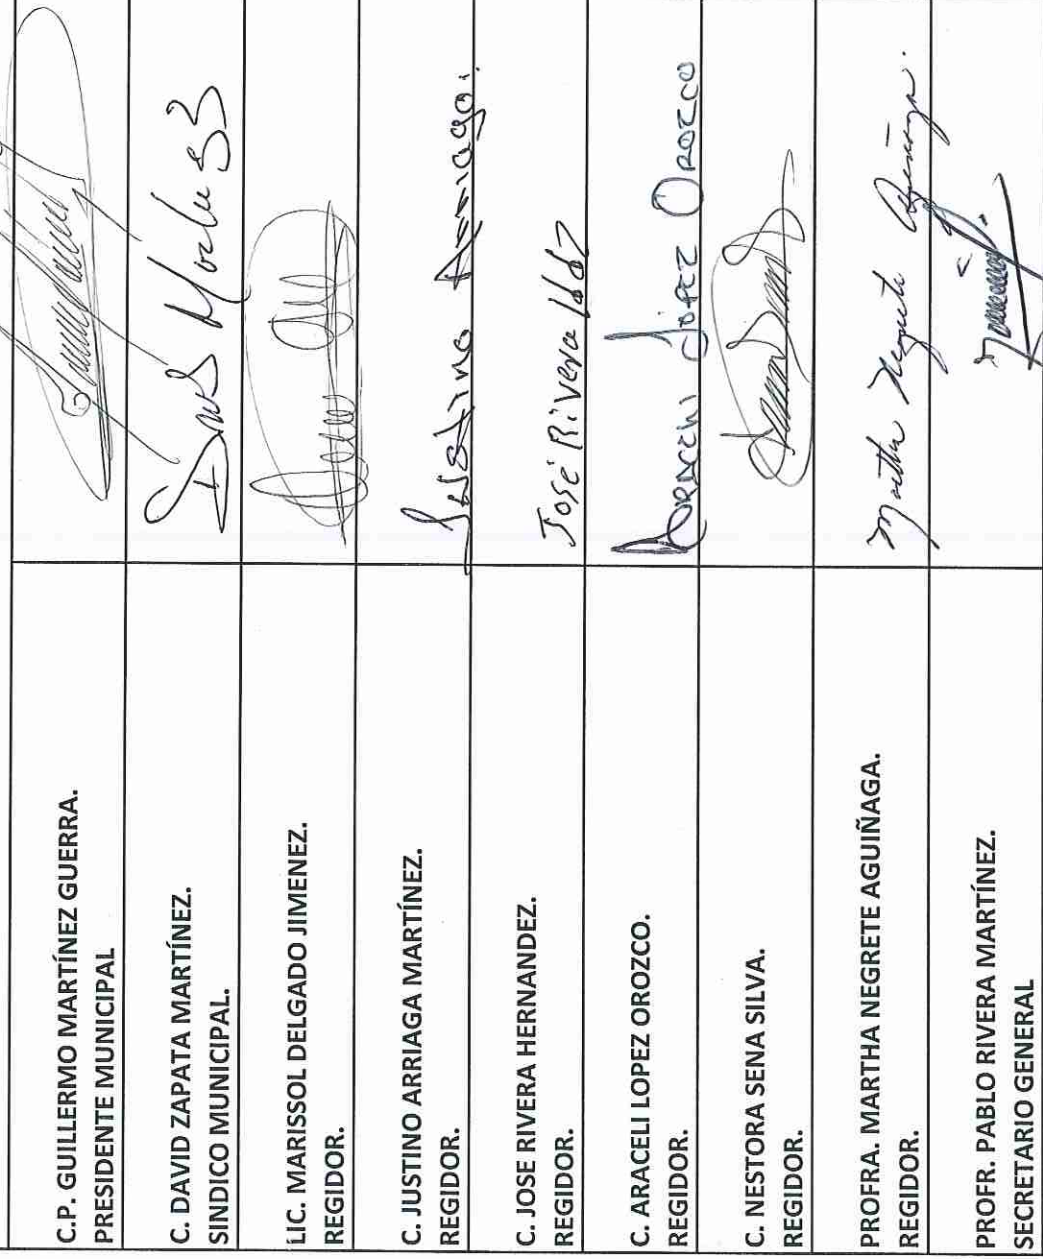 C.P. GUILLERMO MARTÍNEZ GUERRA.
PRESIDENTE MUNICIPAL
C. DAVID ZAPATA MARTÍNEZ.
SINDICO MUNICIPAL.
LIC. MARISSOL DELGADO JIMENEZ.
REGIDOR.
C. JUSTINO ARRIAGA MARTÍNEZ.
REGIDOR.
Justino Arriaga.
C. JOSE RIVERA HERNANDEZ.
REGIDOR.
José Rivera
C. ARACELI LOPEZ OROZCO.
REGIDOR.
ARACELI LÓPEZ OROZCO
C. NESTORA SENA SILVA.
REGIDOR.
PROFRA. MARTHA NEGRETE AGUIÑAGA.
REGIDOR.
Martha Negrete Aguiñaga.
PROFR. PABLO RIVERA MARTÍNEZ.
SECRETARIO GENERAL